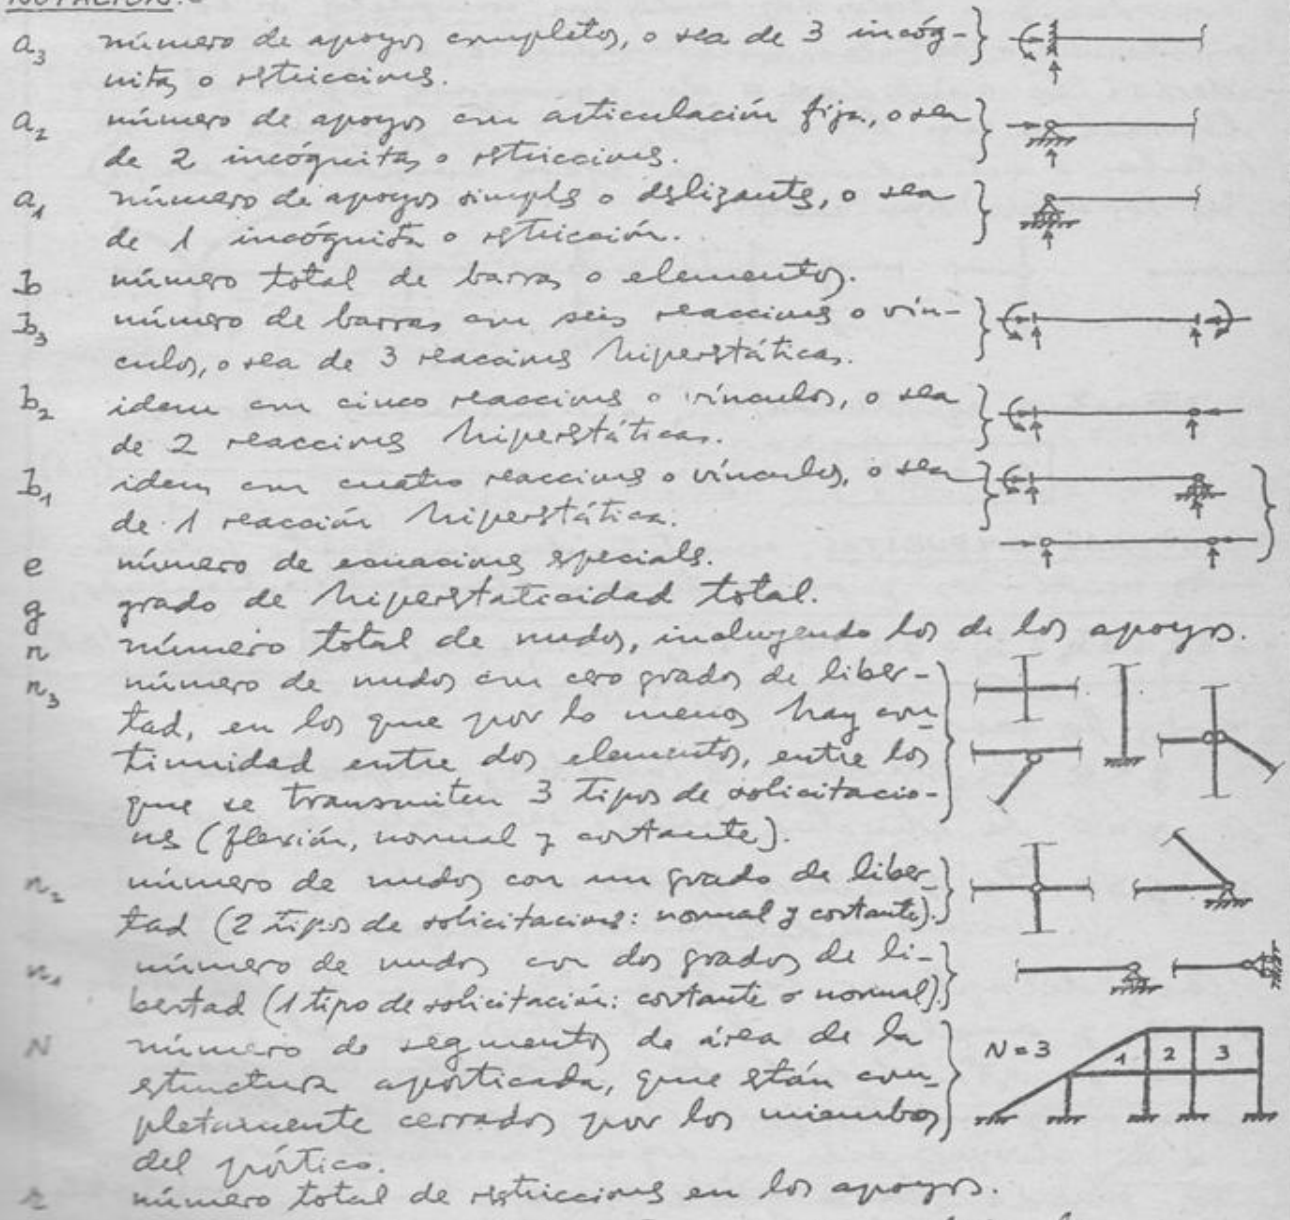 NOTACIÓN.-
a3 número de apoyos completos, o sea de 3 incóg-
nitas o restricciones.
a2 número de apoyos con articulación fija, o sea
de 2 incógnitas o restricciones.
a1 número de apoyos simples o deslizantes, o sea
de 1 incógnita o restricción.
b número total de barras o elementos.
b3 número de barras con seis reacciones o vín-
culos, o sea de 3 reacciones hiperstáticas.
b2 idem con cinco reacciones o vínculos, o sea
de 2 reacciones hiperstáticas.
b1 idem con cuatro reacciones o vínculos, o sea
de 1 reacción hiperstática.
e número de ecuaciones especiales.
g grado de hiperstaticidad total.
n número total de nudos, incluyendo los de los apoyos.
n3 número de nudos con cero grados de liber-
tad, en los que por lo menos hay con-
tinuidad entre dos elementos, entre los
que se transmiten 3 tipos de solicitacio-
nes (flexión, normal y cortante).
n2 número de nudos con un grado de liber-
tad (2 tipos de solicitaciones: normal y cortante).
n1 número de nudos con dos grados de li-
bertad (1 tipo de solicitación: cortante o normal).
N número de segmentos de área de la
estructura aporticada, que están com-
pletamente cerrados por los miembros
del pórtico.
N=3 1 2 3
r número total de restricciones en los apoyos.